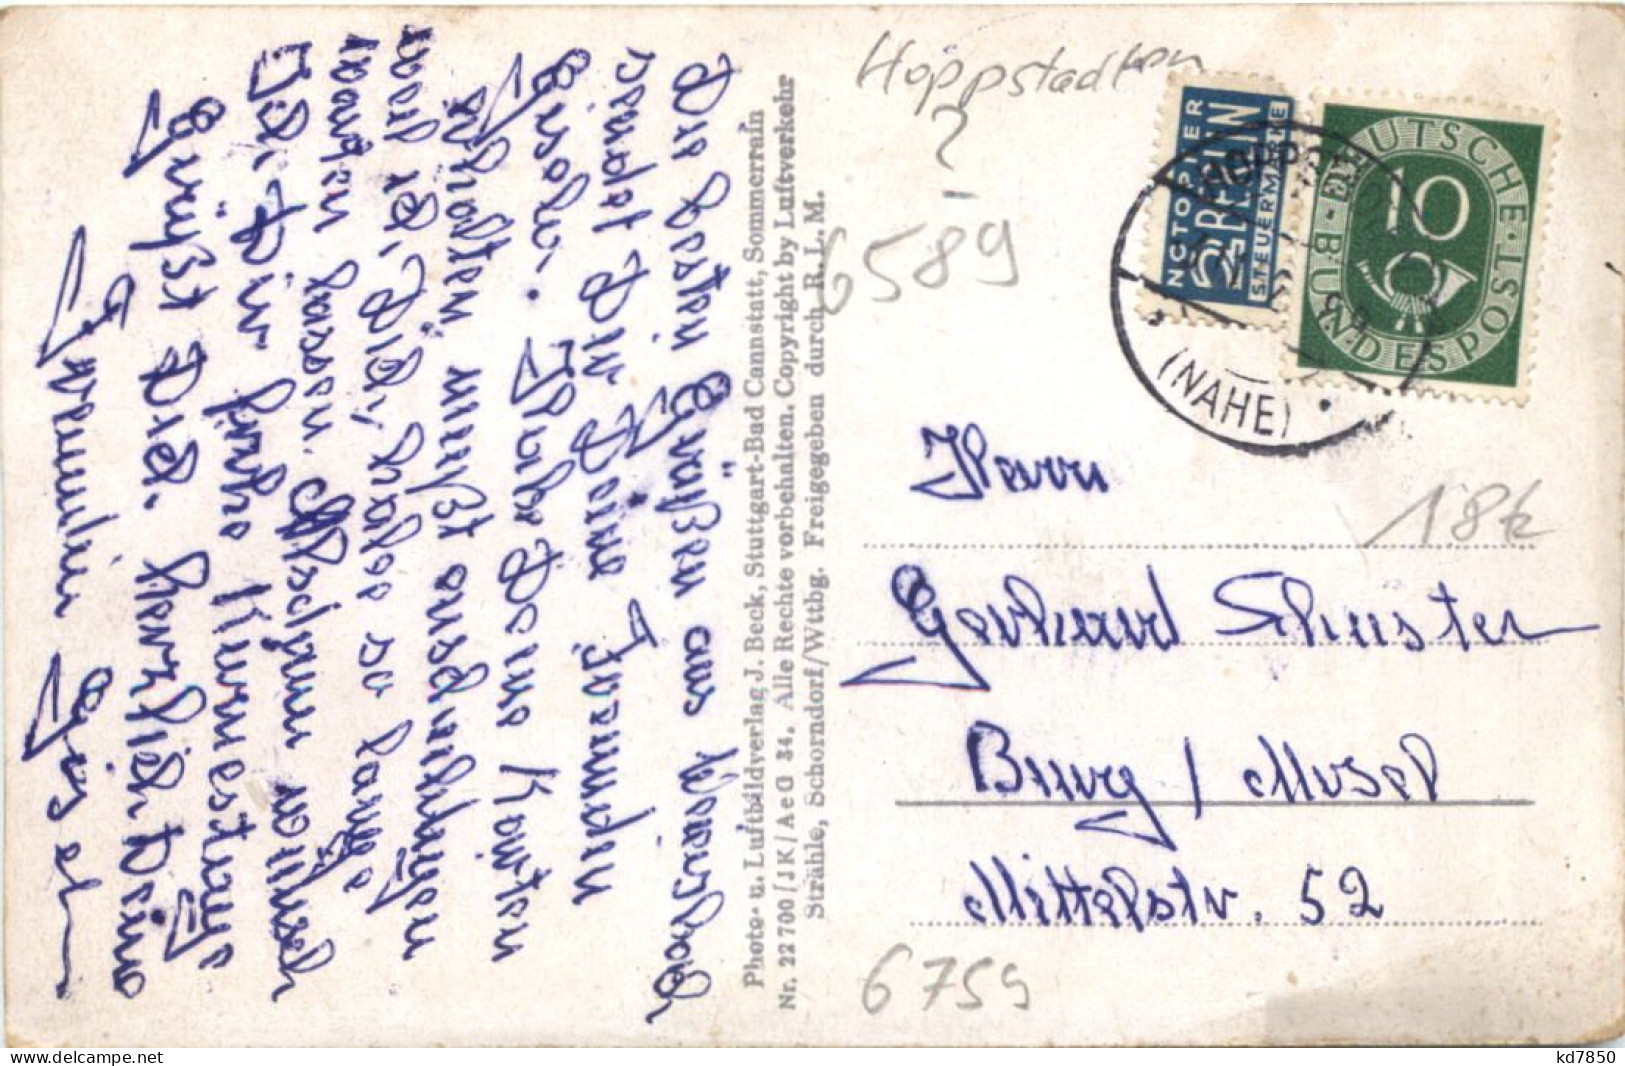 Die besten Grüßen aus
sendet Dir Deine Freundin
Gisela. Habe Deine Karten
erhalten, mußt entschuldigen
weil ich Dich habe so lange
warten lassen. Außerdem wünsch
ich Dir frohe
Grüßt Dich herzlich Deine
Freundin Gisela
Photo- u. Luftbildverlag J. Beck, Stuttgart-Bad Cannstatt, Sommerrain
Nr. 22 700 / J K / A e O 34. Alle Rechte vorbehalten. Copyright by Luftverkehr
Strähle, Schorndorf/Wttbg. Freigegeben durch R. L. M.
Hoppstadten
?
6589
NOTOPFER
2 BERLIN
STEUERMARKE
DEUTSCHE · POST
10
BUNDESPOST
(NAHE)
Herrn
18k
Gerhard Schuster
Burg / Mosel
Mittelstr. 52
6759
kd7850